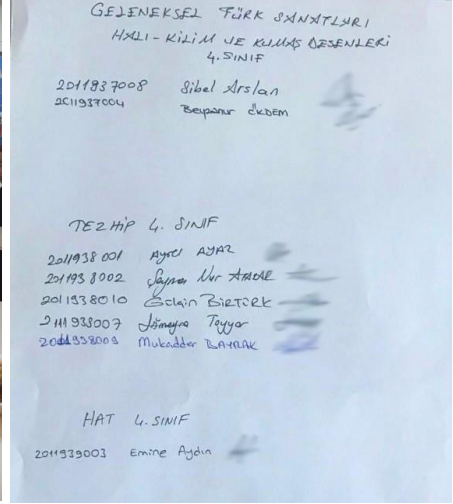 GELENEKSEL TÜRK SANATLARI
HALI - KİLİM VE KUMAŞ DESENLERİ
4. SINIF
2011937008 Sibel Arslan
2011937004 Beyzanur ÖKDEM
TEZHİP 4. SINIF
2011938001 Aysel AYAZ
2011938002 Nur
2011938010 Gülçin BİRTÜRK
2111938007 Sümeyra Tayyar
2011938009 Mukadder BAYRAK
HAT 4. SINIF
2011939003 Emine Aydın